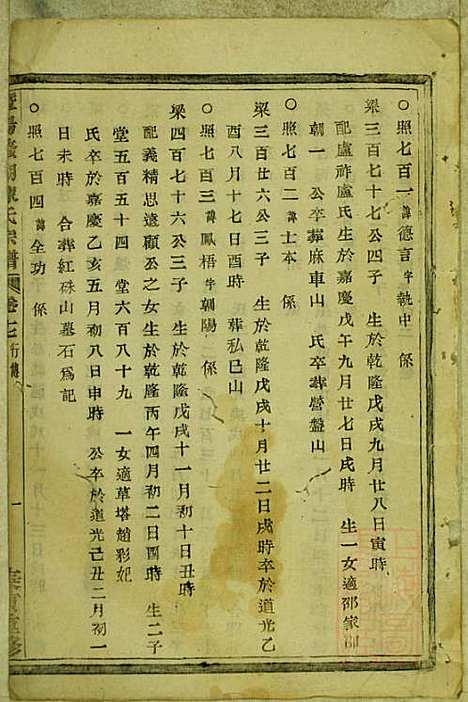 ○照七百一諱德言字執中 係
梁三百七十七公四子 生於乾隆戊戌九月廿八日寅時
配盧祚盧氏生於嘉慶戊午九月廿七日戌時 生一女適邵家
朝一 公卒葬麻車山 氏卒葬營盤山
○照七百二諱士本 係
梁三百廿六公三子 生於乾隆戊戌十月廿二日戌時卒於道光乙
酉八月十七日酉時 葬私己山
○照七百三諱鳳梧字朝陽 係
梁四百七十六公三子 生於乾隆戊戌十一月初十日丑時
配義精思遠顧公之女生於乾隆丙午四月初二日酉時 生二子
堂五百五十四 堂六百八十九 一女適草塔趙彩妃
氏卒於嘉慶乙亥五月初八日申時 公卒於道光己丑二月初一
日未時 合葬紅硃山墓石爲記
○照七百四諱全功 係
氏宗譜 卷七 行傳 一